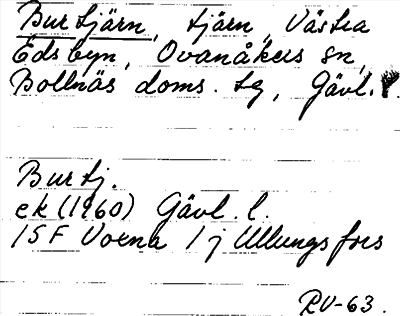 Burtjärn, tjärn, Västra
Edsbyn, Ovanåkers sn,
Bollnäs doms. tg, Gävl.
Burtj.
ek (1960) Gävl. l.
15F Voxna 1j Ullungsfors
RV-63.